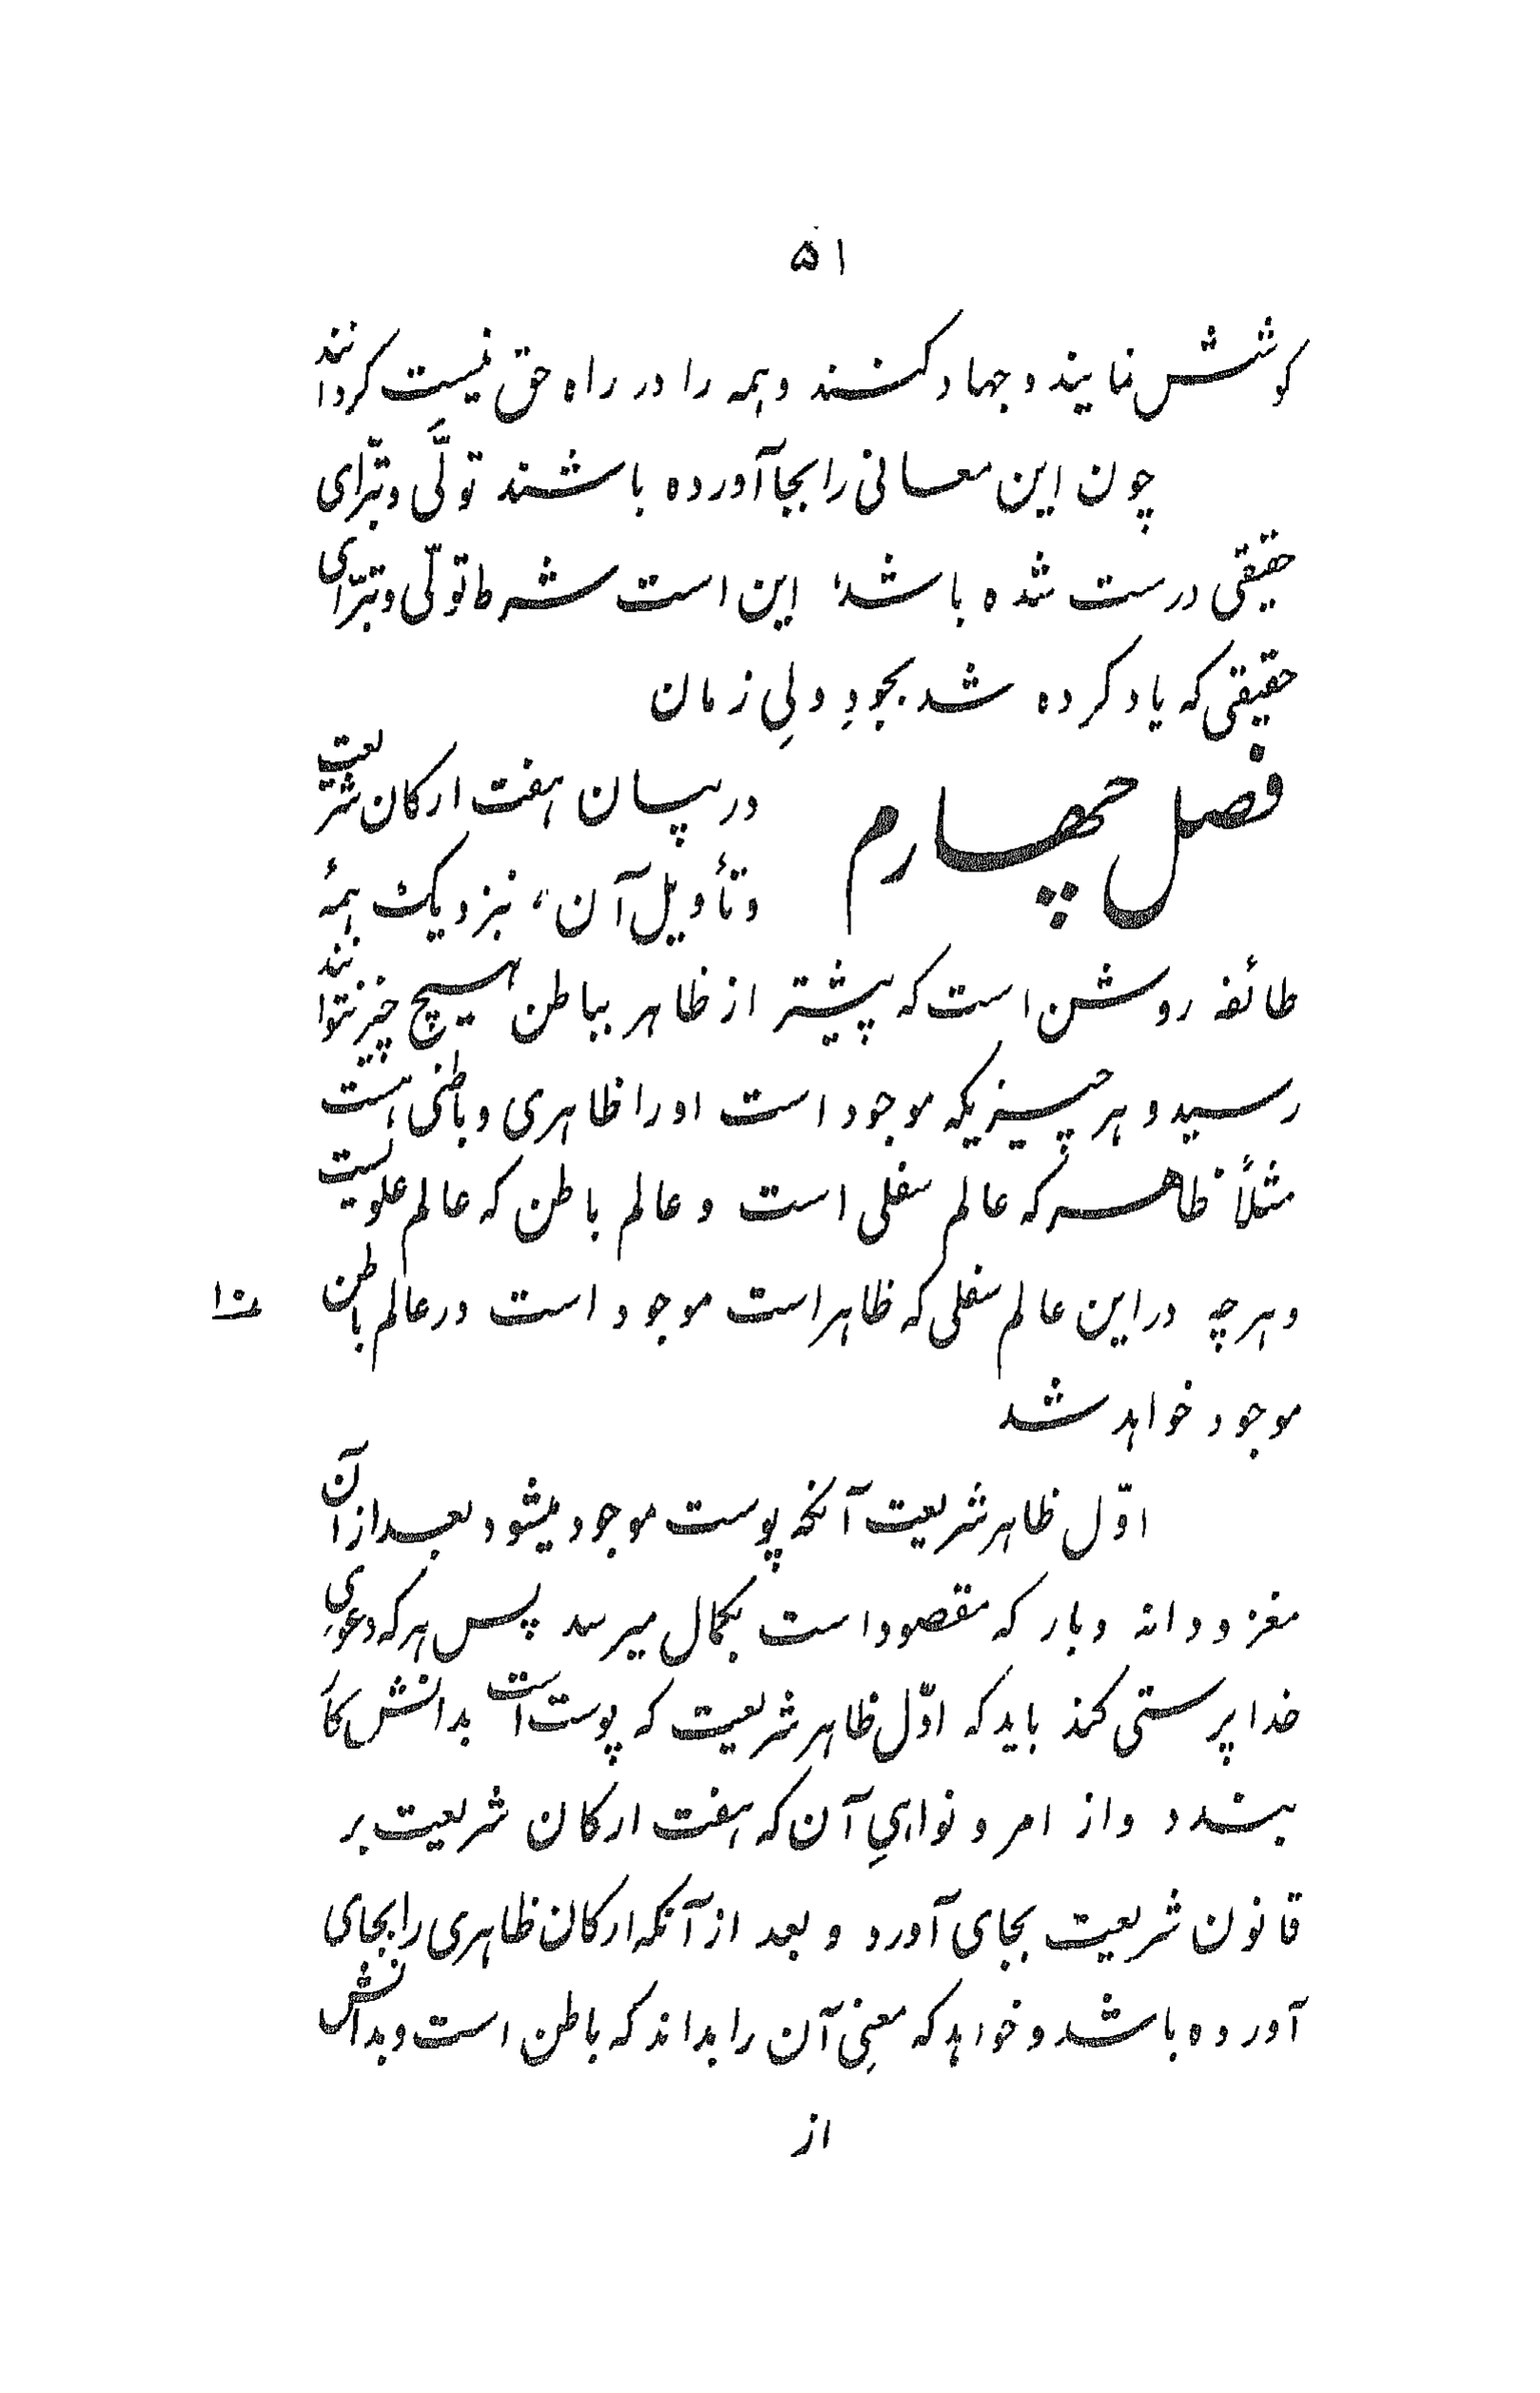 ۵۱
کوشش نمایند و جهاد کنند و همه را در راه حق نیست کردانند
چون این معانی را بجا آورده باشند تولَّی و تبرّای
حقیقی درست شده باشد، این است شرط تولّی و تبرّای
حقیقی که یاد کرده شد بجودِ ولیِ زمان
فصل چهارم در بیان هفت ارکان شریعت
و تأویل آن، نزدیک همهٔ
طائفه روشن است که پیشتر از ظاهر بباطن هیچ چیز نتوانند
رسید و هر چیزیکه موجود است او را ظاهری و باطنی است
مثلاً ظاهر که عالم سفلی است و عالم باطن که عالم علویست
و هر چه در این عالم سفلی که ظاهر است موجود است در عالم باطن
۱۰
موجود خواهد شد
اوّل ظاهر شریعت آنکه پوست موجود میشود بعد از آن
مغز و دانه و بار که مقصود است بکمال میرسد پس هر که دعویِ
خداپرستی کند باید که اوّل ظاهر شریعت که پوست است بدانش کار
بندد و از امر و نواهیِ آن که هفت ارکان شریعت بر
قانون شریعت بجای آورد و بعد از آنکه ارکان ظاهری را بجای
آورده باشد و خواهد که معنِی آن را بداند که باطن است و بدانش
از